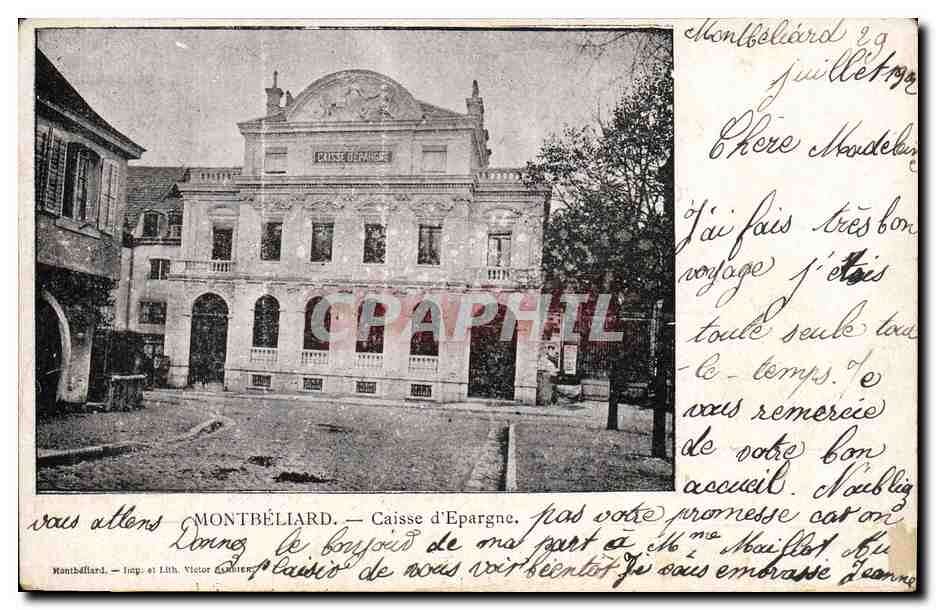 Montbéliard 29
juillet 1902
Chère Madeleine
J'ai fais très bon
voyage j'étais
toute seule tous
-le-temps. Je
vous remercie
de votre bon
accueil. N'oubliez
pas votre promesse car on
vous attens
Donnez le bonjour de ma part à Mme Maillot Au
plaisir de vous voir bientôt Je vous embrasse Jeanne
CAISSE D'EPARGNE
MONTBÉLIARD. — Caisse d'Epargne.
Montbéliard. — Imp. et Lith. Victor BARBIER
Cap-Collections.com